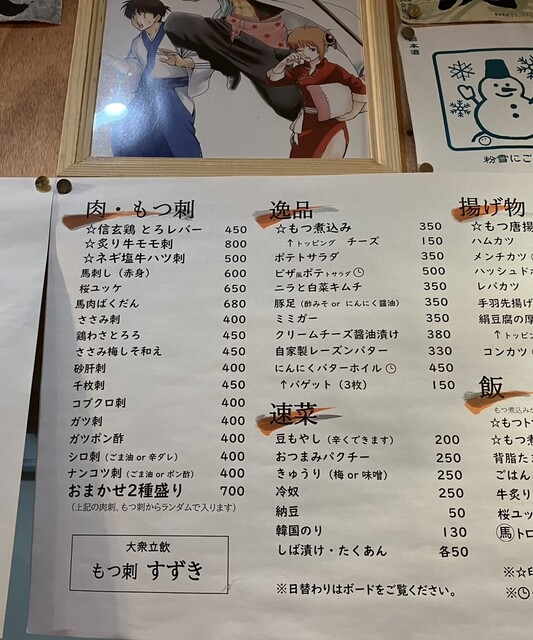 日本酒
粉雪にご
肉・もつ刺
☆信玄鶏 とろレバー 450
☆炙り牛モモ刺 800
☆ネギ塩牛ハツ刺 500
馬刺し（赤身） 600
桜ユッケ 650
馬肉ばくだん 680
ささみ刺 400
鶏わさとろろ 450
ささみ梅しそ和え 450
砂肝刺 400
千枚刺 450
コブクロ刺 400
ガツ刺 400
ガツポン酢 400
シロ刺（ごま油 or 辛ダレ） 400
ナンコツ刺（ごま油 or ポン酢） 400
おまかせ2種盛り 700
（上記の肉刺、もつ刺からランダムで入ります）
大衆立飲
もつ刺 すずき
逸品
☆もつ煮込み 350
↑トッピング チーズ 150
ポテトサラダ 350
ピザ風ポテトサラダ 500
ニラと白菜キムチ 350
豚足（酢みそ or にんにく醤油） 350
ミミガー 350
クリームチーズ醤油漬け 380
自家製レーズンバター 330
にんにくバターホイル 450
↑バゲット（3枚） 150
速菜
豆もやし（辛くできます） 200
おつまみパクチー 250
きゅうり（梅 or 味噌） 250
冷奴 250
納豆 50
韓国のり 130
しば漬け・たくあん 各50
※日替わりはボードをご覧ください。
揚げ物
☆もつ唐揚
ハムカツ
メンチカツ
ハッシュド
レバカツ
手羽先揚げ
絹豆腐の厚
↑トッピン
コンカツ
飯
もつ煮込みが
☆もつト
☆もつ煮
背脂たま
ごはん
牛炙り
桜ユッ
馬トロ
※☆印
※